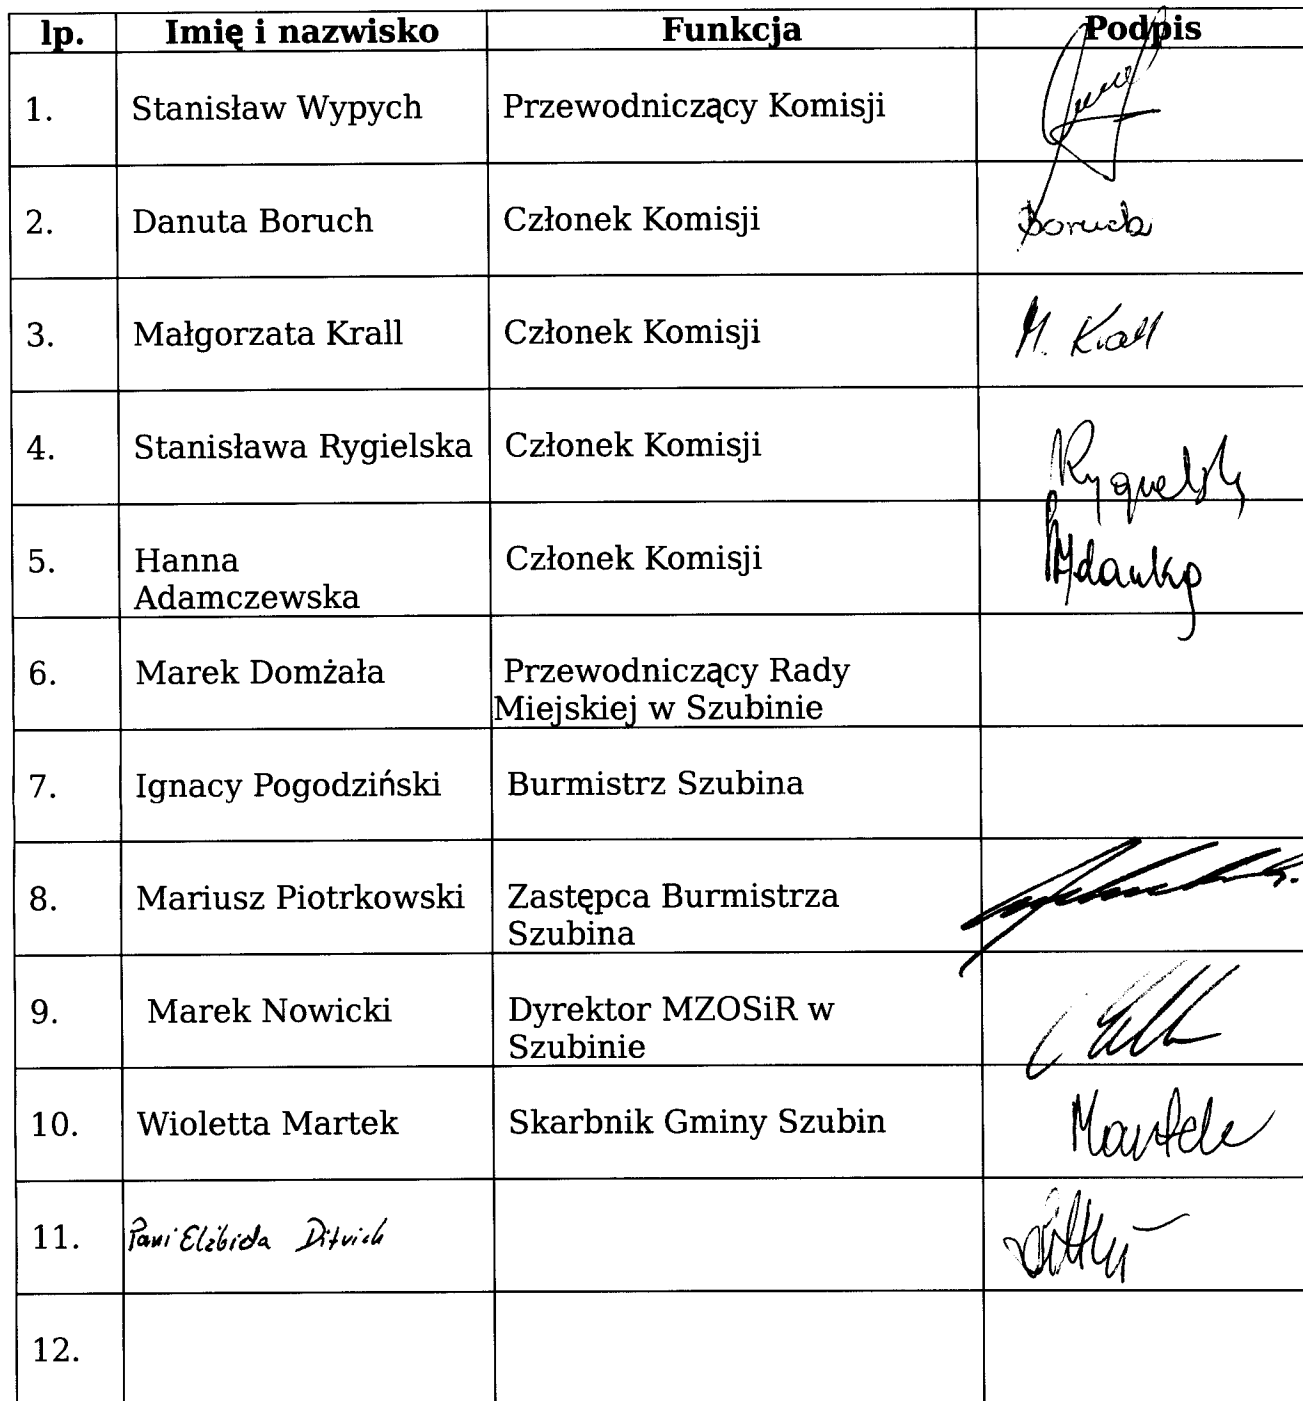 lp. Imię i nazwisko Funkcja Podpis
1. Stanisław Wypych Przewodniczący Komisji
2. Danuta Boruch Członek Komisji Boruch
3. Małgorzata Krall Członek Komisji M. Krall
4. Stanisława Rygielska Członek Komisji
5. Hanna Członek Komisji
Adamczewska
6. Marek Domżała Przewodniczący Rady
Miejskiej w Szubinie
7. Ignacy Pogodziński Burmistrz Szubina
8. Mariusz Piotrkowski Zastępca Burmistrza
Szubina
9. Marek Nowicki Dyrektor MZOSiR w
Szubinie
10. Wioletta Martek Skarbnik Gminy Szubin Martek
11. Pani Elżbieta
12.